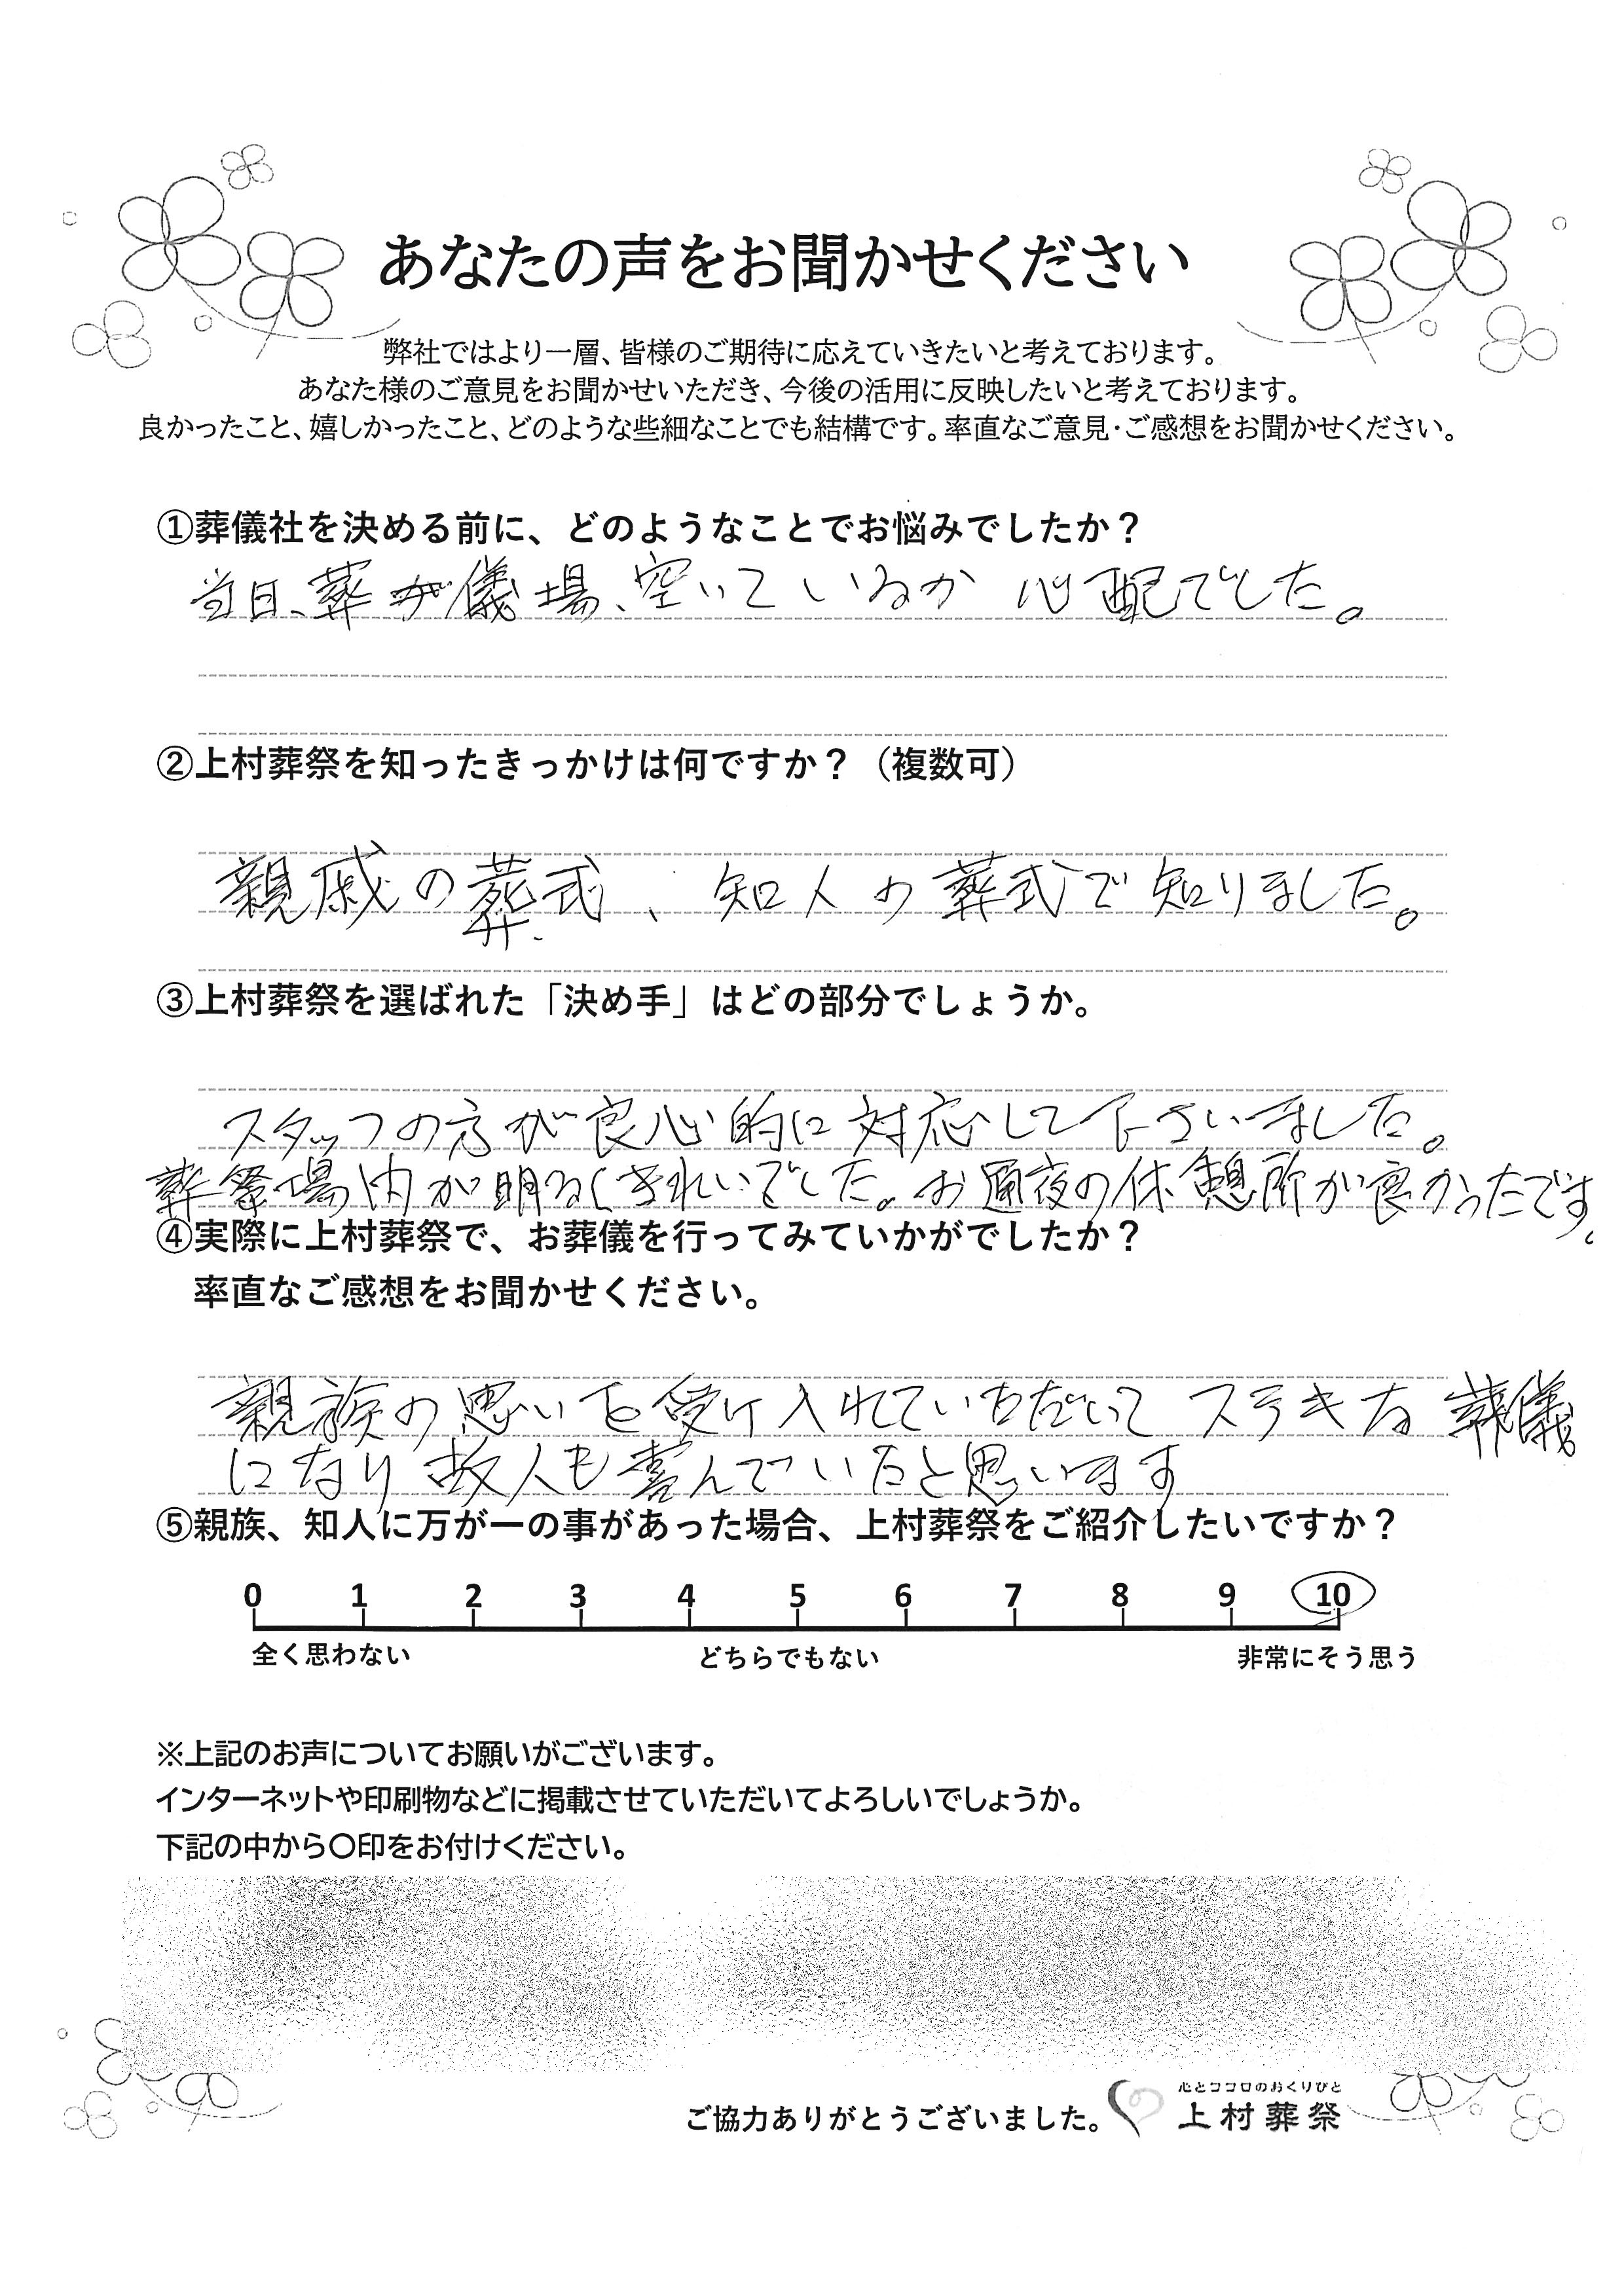 あなたの声をお聞かせください
弊社ではより一層、皆様のご期待に応えていきたいと考えております。
あなた様のご意見をお聞かせいただき、今後の活用に反映したいと考えております。
良かったこと、嬉しかったこと、どのような些細なことでも結構です。率直なご意見・ご感想をお聞かせください。
①葬儀社を決める前に、どのようなことでお悩みでしたか？
当日、葬儀場、空いているか 心配でした。
②上村葬祭を知ったきっかけは何ですか？（複数可）
親戚の葬式、知人の葬式で知りました。
③上村葬祭を選ばれた「決め手」はどの部分でしょうか。
スタッフの方が良心的に対応して下さいました。
葬祭場内が明るくきれいでした。お通夜の休憩所が良かったです。
④実際に上村葬祭で、お葬儀を行ってみていかがでしたか？
率直なご感想をお聞かせください。
親族の思いを受け入れていただいてステキな葬儀
になり故人も喜んでいると思います
⑤親族、知人に万が一の事があった場合、上村葬祭をご紹介したいですか？
0 1 2 3 4 5 6 7 8 9 10
全く思わない どちらでもない 非常にそう思う
※上記のお声についてお願いがございます。
インターネットや印刷物などに掲載させていただいてよろしいでしょうか。
下記の中から〇印をお付けください。
心とココロのおくりびと
ご協力ありがとうございました。 上村葬祭